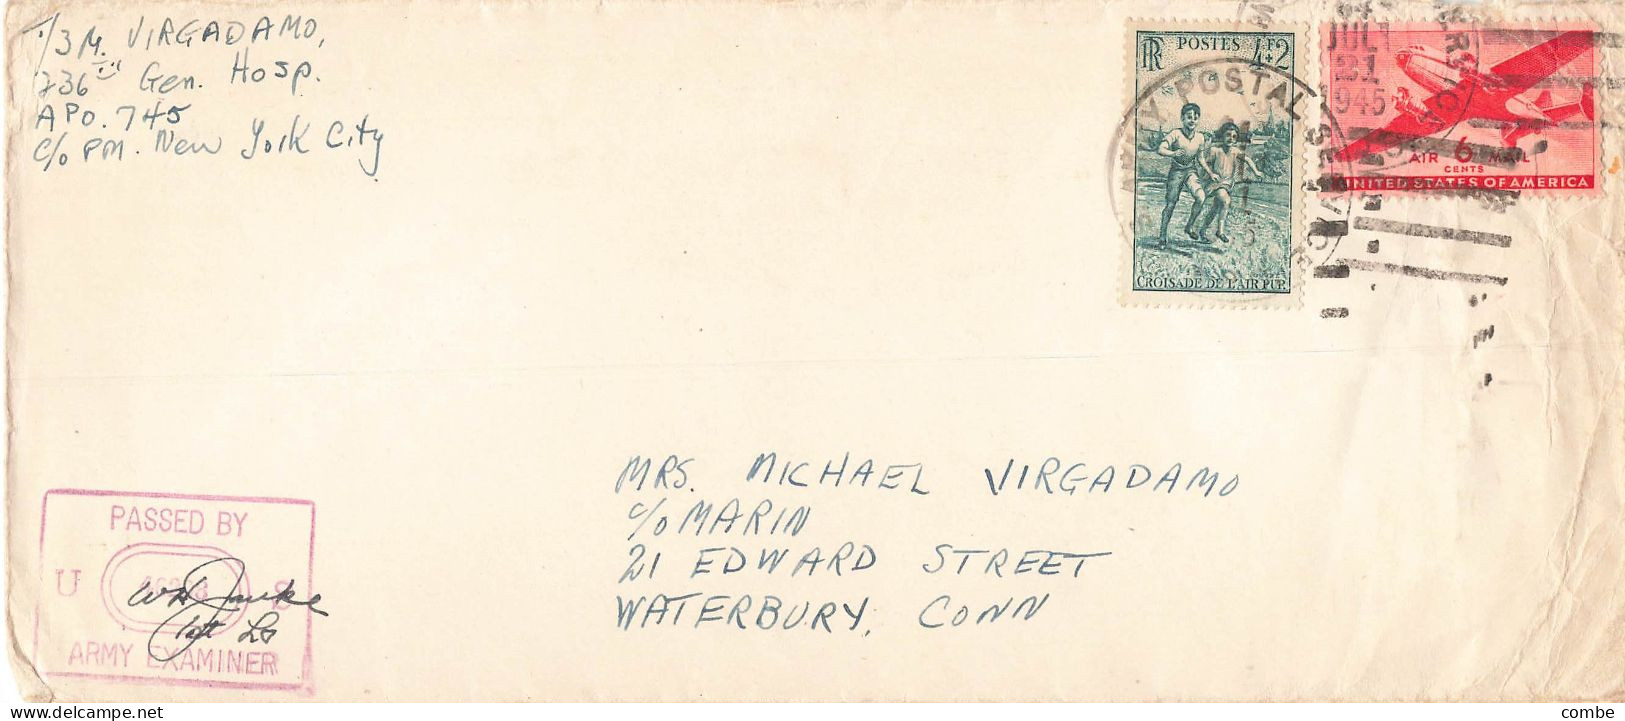 T/3 M. VIRGADAMO,
236 Gen. Hosp.
APO. 745
c/o PM. New York City
RF POSTES 4F+2
CROISADE DE L'AIR PUR
ARMY POSTAL SERVICE
JUL
21
1945
AIR 6 MAIL
CENTS
UNITED STATES OF AMERICA
MRS. MICHAEL VIRGADAMO
c/o MARIN
21 EDWARD STREET
WATERBURY, CONN
PASSED BY
U S
1st Lt
ARMY EXAMINER
delcampe.net
combe